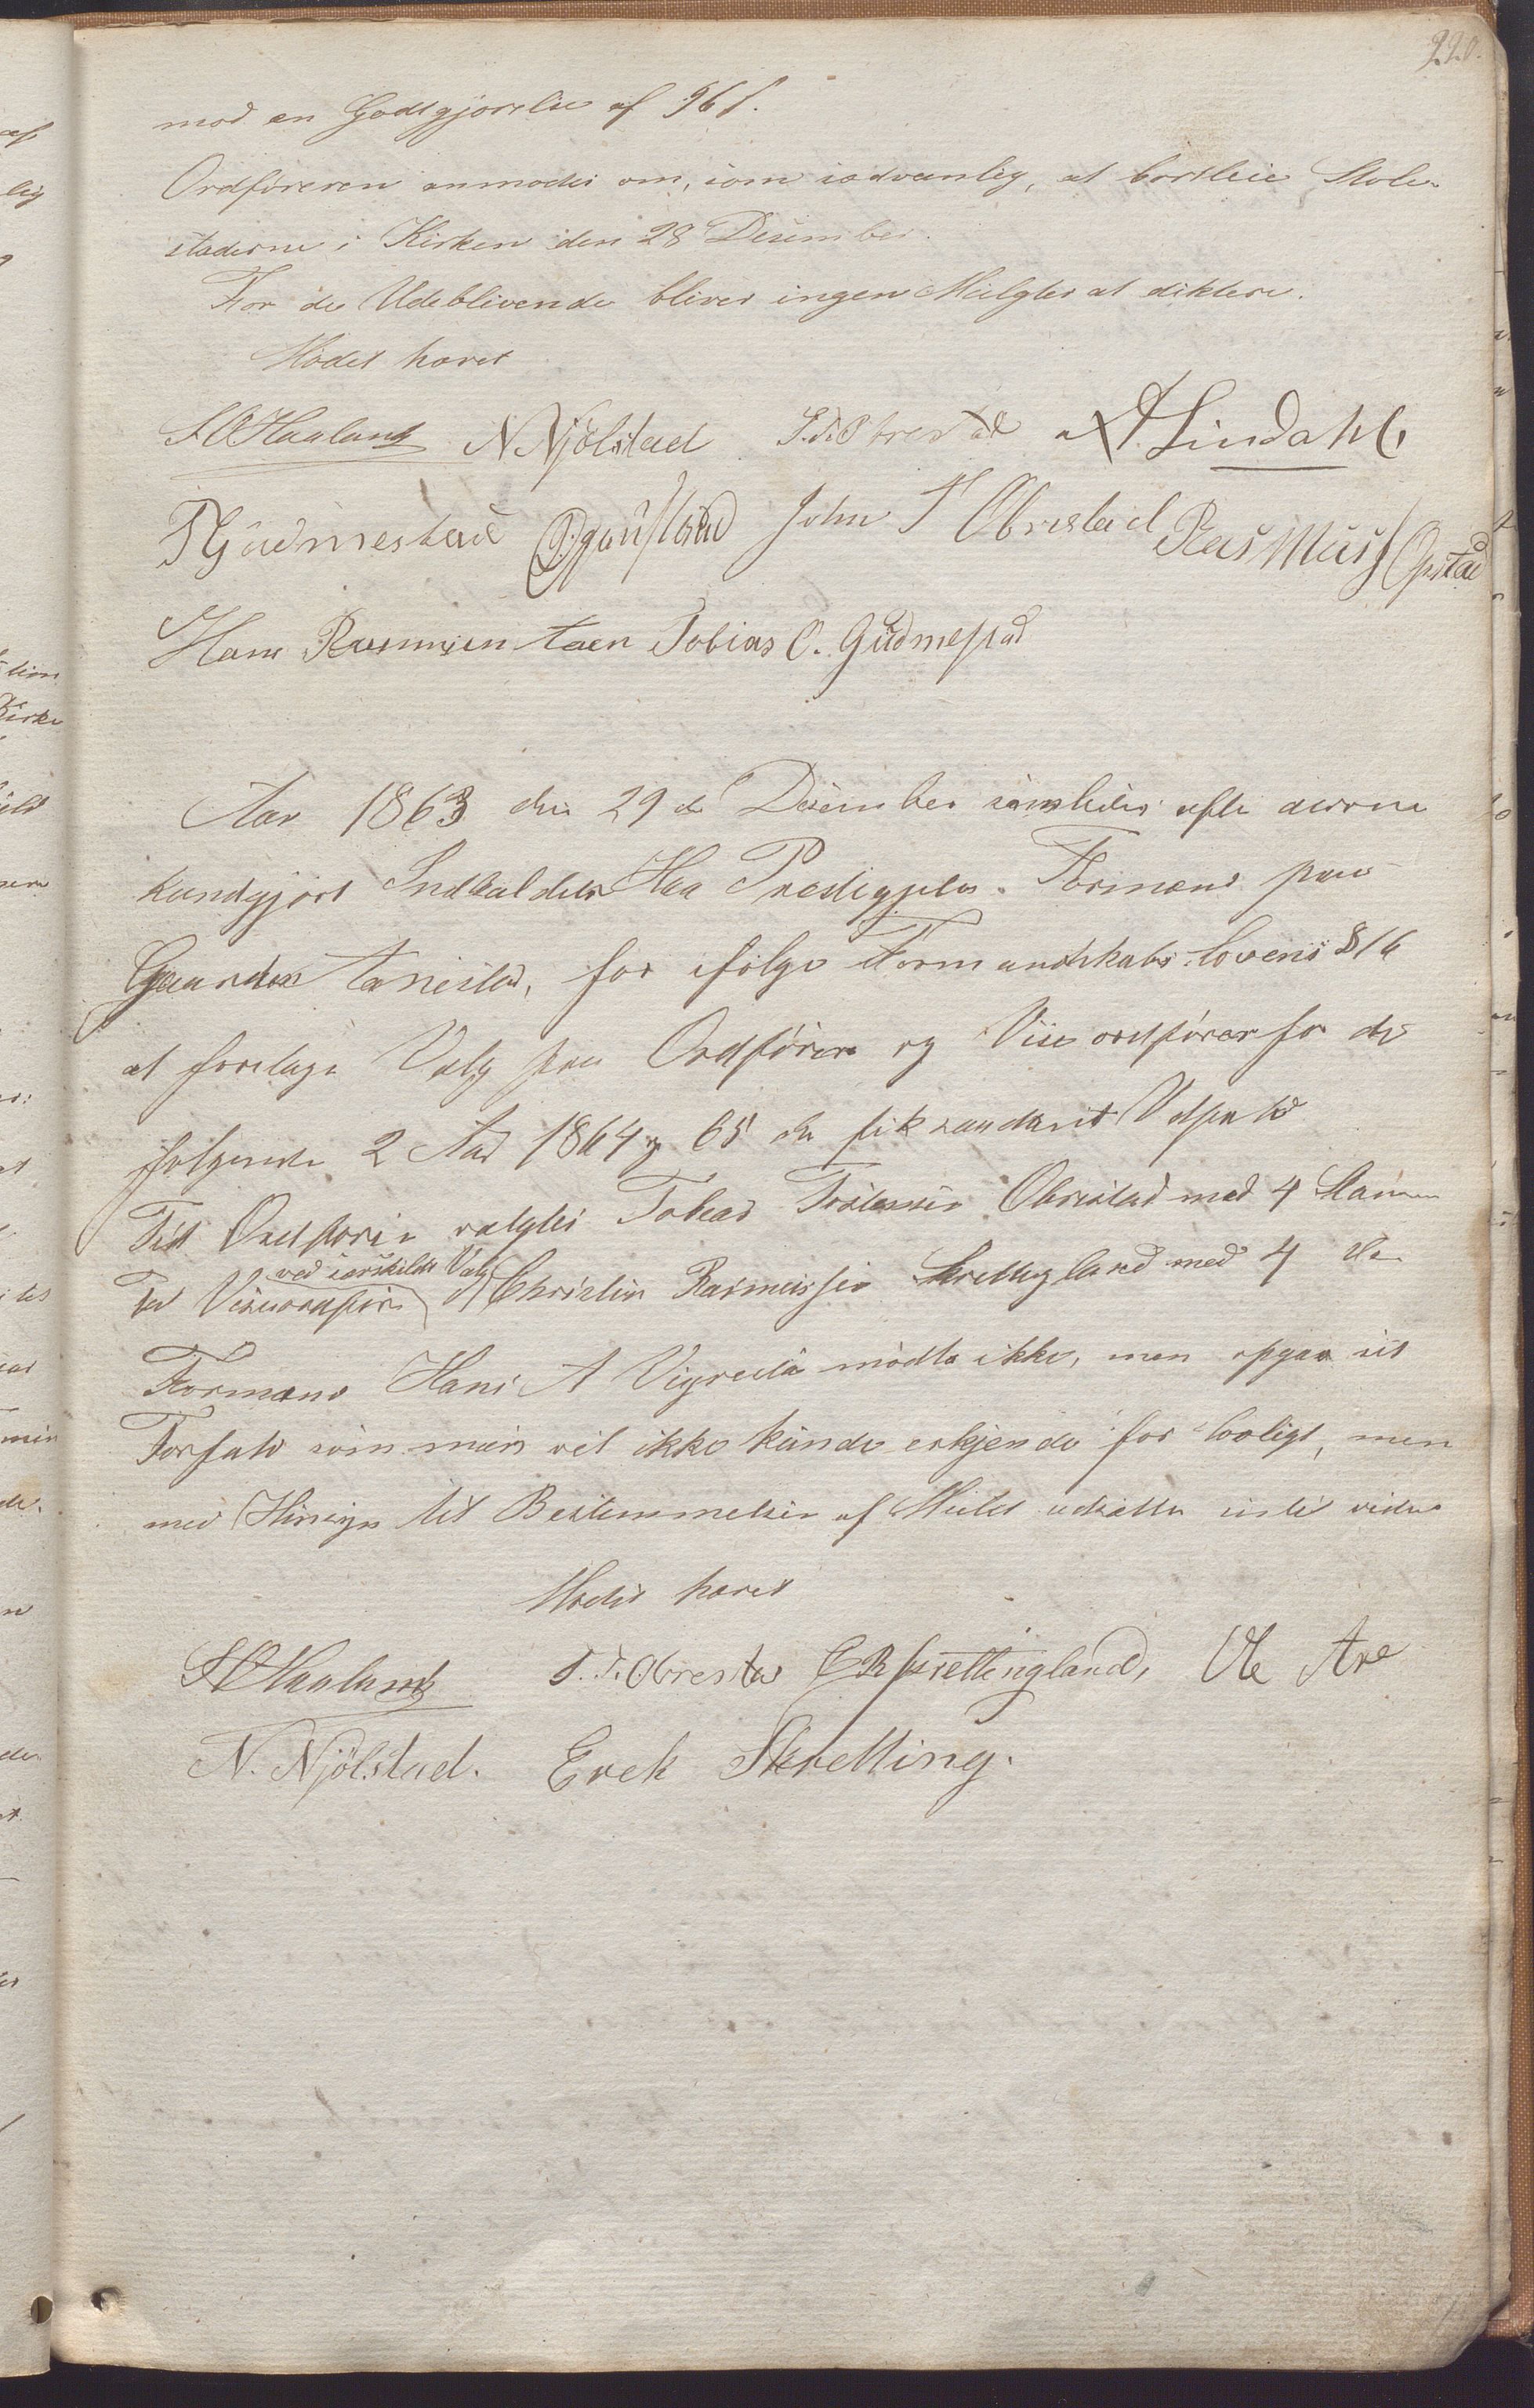 220.
mod en Godtgjørelse af 96 s.
Ordføreren anmodes om, som sædvanlig, at bortleie Stole-
staderne i Kirken den 28 Desember.
For de Udeblivende bliver ingen Mulgter at diktere.
Mødet hævet
S O Haaland N Njølstad T. T. Obrestad A Lindahl
T Gudmestad John T Obrestad Rasmus Opstad
Hans Rasmusen Tobias O. Gudmestad
Aar 1863 den 29de Desember samledes efter
kundgjort Indkaldelse Haa Prestegjelds Formænd paa
Gaarden for ifølge Formandskabs Lovens § 16
at foretage Valg paa Ordfører og Viseordfører for de
følgende 2 Aar 1864 og 65 der fik saadant Udfald
Til Ordfører valgtes Tobias Obrestad med 4 Stemmer
ved særskildt Valg
Til Viseordfører Christen Rasmussen Skrettegland med 4 do
Formand Hans A Vigrestad mødte ikke, men opgav sit
Forfald som man vel ikke kunde erkjende for lovligt, men
med Hinsyn til Bestemmelsen af Mulct udsettes indtil videre
Mødet hævet
S O Haaland T. T. Obrestad C R Skrettingland, Ole Are
N. Njølstad. Erek Skretting.